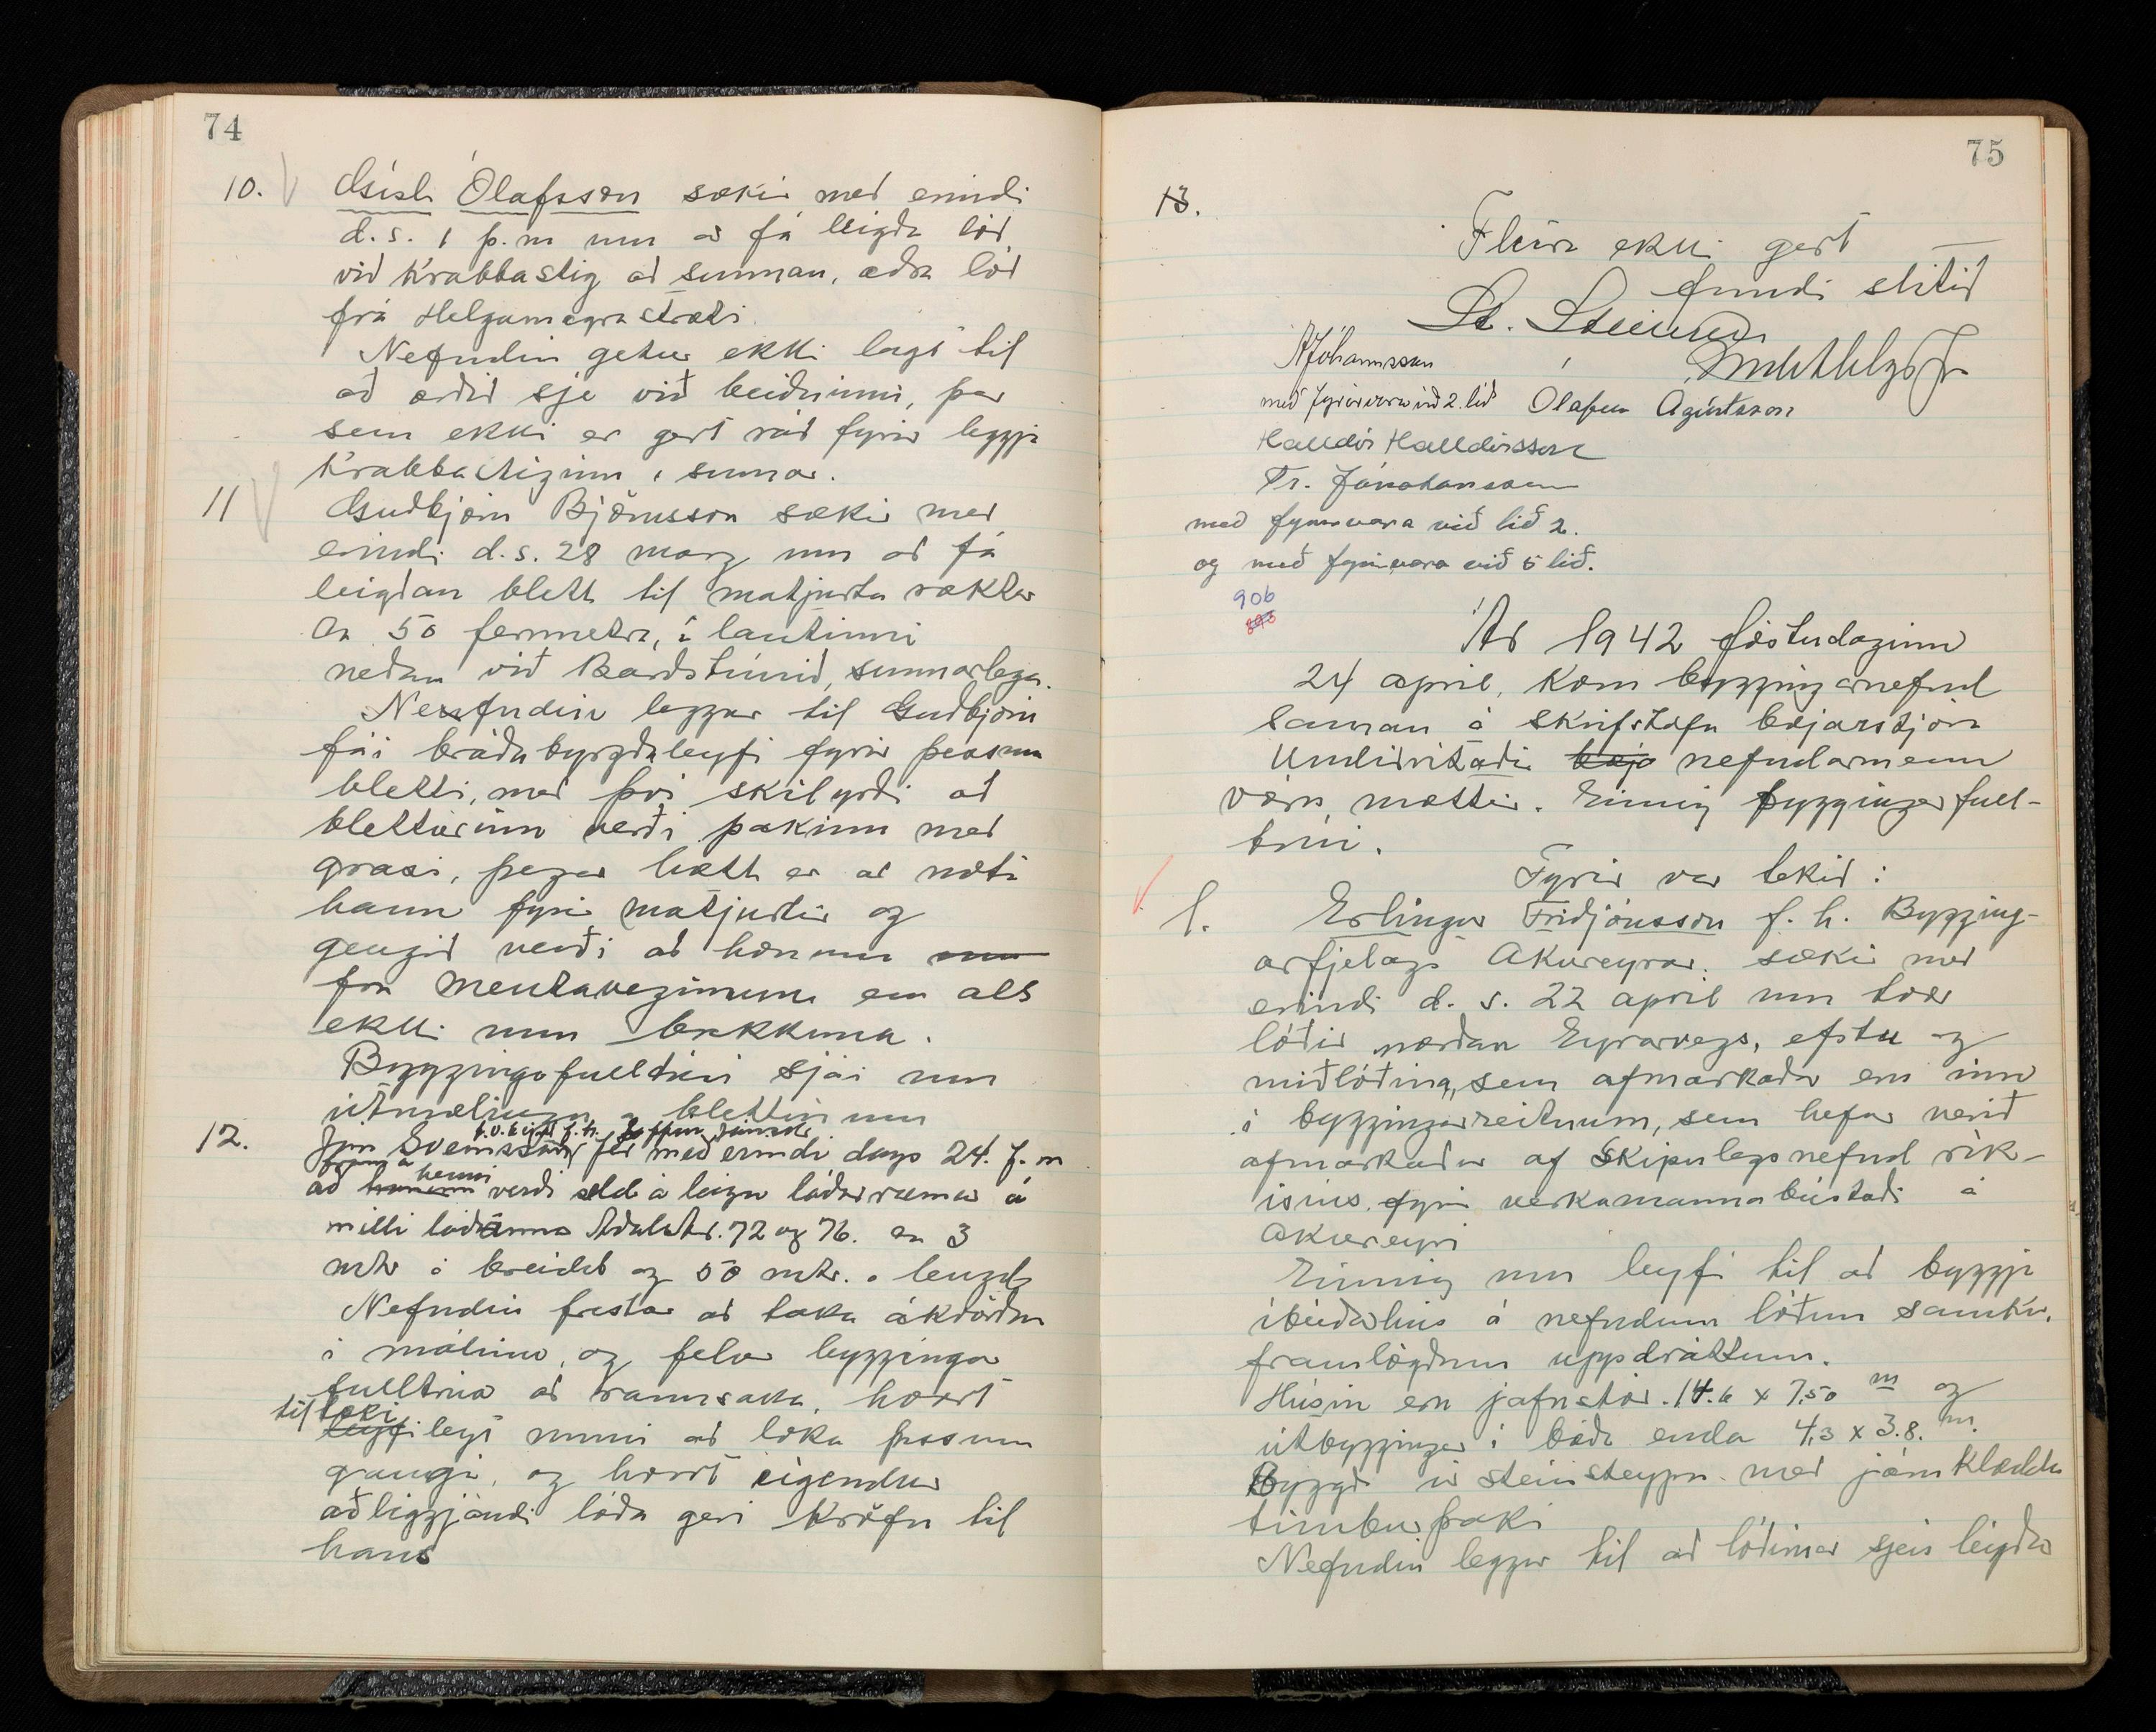 74
10. Gísli Ólafsson sækir með erindi
d.s. 1 þ.m um að fá leigða lóð
við Krabbastíg að sunnan, aðra lóð
frá Helgamagrastræti.
Nefndin getur ekki lagt til
að orðið sje við beiðninni, þar
sem ekki er gert ráð fyrir leggja
Krabbastíginn í sumar.
11 Guðbjörn Björnsson sækir með
erindi d.s. 28 marz um að fá
leigðan blett til matjurta ræktar
ca 50 fermetra, í lautinni
neðan við Barðstúnið, sunnarlega.
Nefndin leggur til Guðbjörn
fái bráðabyrgðaleyfi fyrir þessum
bletti, með því skilyrði að
bletturinn verði þakinn með
grasi, þegar hætt er að nota
hann fyrir matjurtir og
gengið verði að honum
frá Mentaveginum en alls
ekki um brekkuna.
Byggingafulltrúi sjái um
útmælingu á blettinum
12. Jón Sveinsson f.h. fer með erindi dags 24. f.m
að henni verði seld á leigu lóðarræma á
milli lóðanna Aðalstr. 72 og 76. ca 3
mtr á breidd og 50 mtr. á lengd
Nefndin frestar að taka ákvörðun
í málinu, og felur bygginga
fulltrúa að rannsaka, hvort
tiltækilegt muni að loka þessum
gangi, og hvort eigendur
aðliggjandi lóða geri kröfu til
hans
75
13.
Fleira ekki gert
fundi slitið
St. Steinsen
AJóhannsson
með fyrirvara við 2. lið Ólafur Ágústsson
Halldór Halldórsson
Tr. Jónatansson
með fyrirvara við lið 2.
og með fyrirvara við 5 lið.
906
Ár 1942 föstudaginn
24 april, kom byggingarnefnd
saman á skrifstofu bæjarstjóra
Undirritaðir nefndarmenn
voru mættir. Einnig byggingarfull-
trúi.
Fyrir var tekið:
1. Erlingur Friðjónsson f.h. Bygging-
arfjelags Akureyrar. sækir með
erindi d.s. 22 april um tvær
lóðir norðan Eyrarvegs, efstu og
miðlóðina, sem afmarkaðar eru inn
í byggingarreitnum, sem hefur verið
afmarkaður af Skipulagsnefnd rík-
isins fyrir verkamannabústaði á
Akureyri
Einnig um leyfi til að byggja
íbúðarhús á nefndum lóðum samkv.
framlögðum uppdráttum.
Húsin eru jafnstór. 14.6 x 7.50 m og
útbyggingar í báða enda 4.3 x 3.8. m.
Byggð úr steinsteypu með járnklæddu
timburþaki
Nefndin leggur til að lóðirnar sjeu leigðar